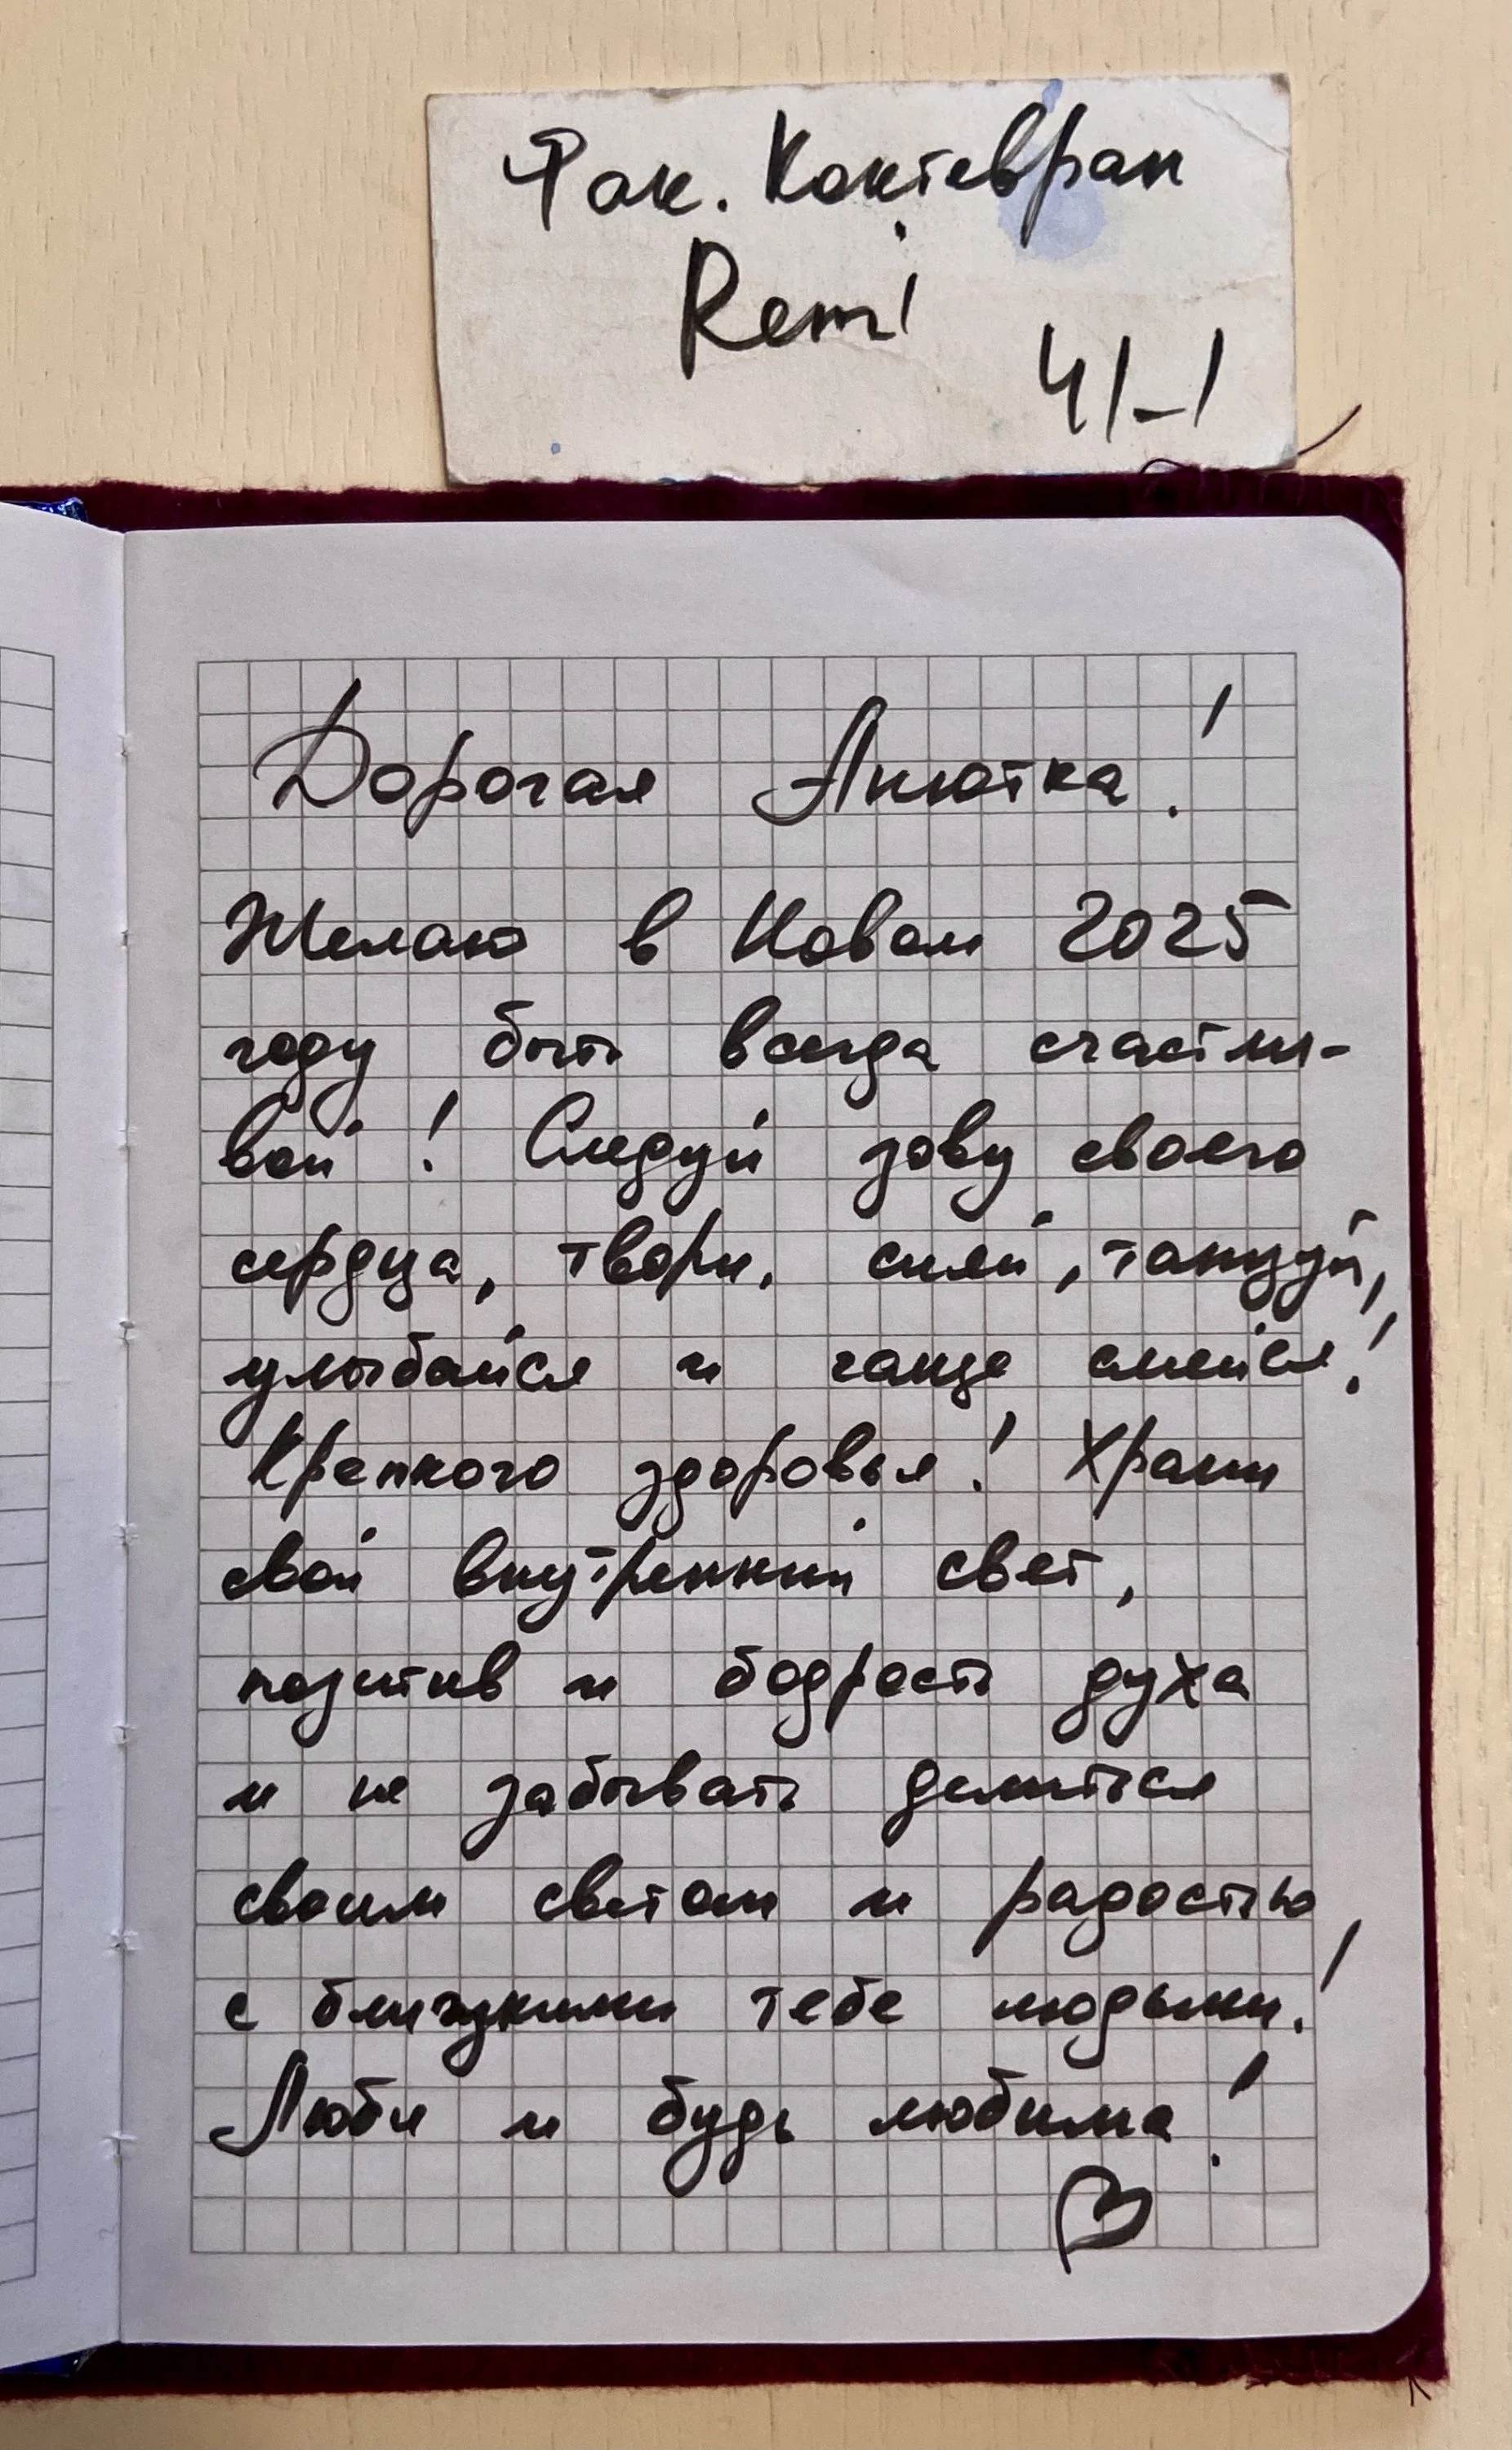 Фак. Контевран
Remi
41-1
Дорогая Анютка!
Желаю в Новом 2025
году быть всегда счастли-
вой! Следуй зову своего
сердца, твори, сияй, танцуй,
улыбайся и чаще смейся!
Крепкого здоровья! Храни
свой внутренний свет,
позитив и бодрость духа
и не забывать делиться
своим светом и радостью
с близкими тебе людьми!
Люби и будь любима!